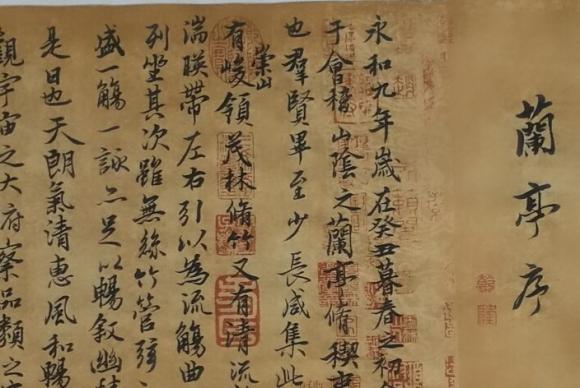 蘭亭序
永和九年歲在癸丑暮春之初
于會稽山陰之蘭亭脩稧
也羣賢畢至少長咸集此
有崇山峻領茂林脩竹又有清流
湍暎帶左右引以為流觴曲
列坐其次雖無絲竹管弦
盛一觴一詠亦足以暢敘幽
是日也天朗氣清惠風和暢
觀宇宙之大俯察品類之